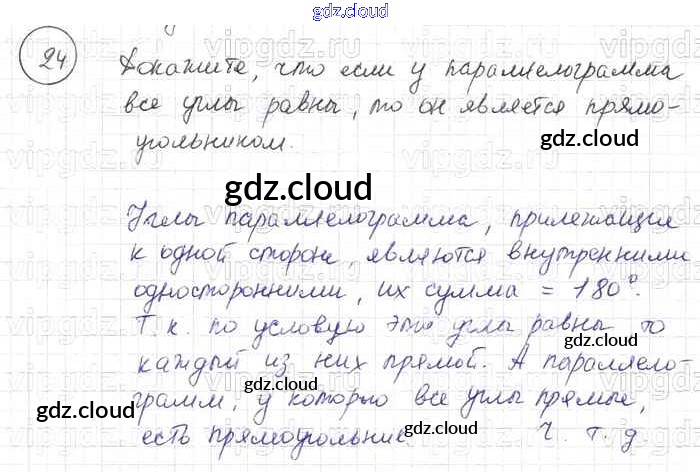 gdz.cloud
24
Докажите, что если у параллелограмма
все углы равны, то он является прямо-
угольником.
gdz.cloud
gdz.cloud
Углы параллелограмма, прилежащие
к одной стороне, являются внутренними
односторонними, их сумма = 180°.
Т. к. по условую эти углы равны то
каждый из них прямой. А параллело-
gdz.cloud
gdz.cloud
грамм, у которью все углы прямые,
gdz.cloud
есть прямоугольник. Ч. т. д.
gdz.cloud